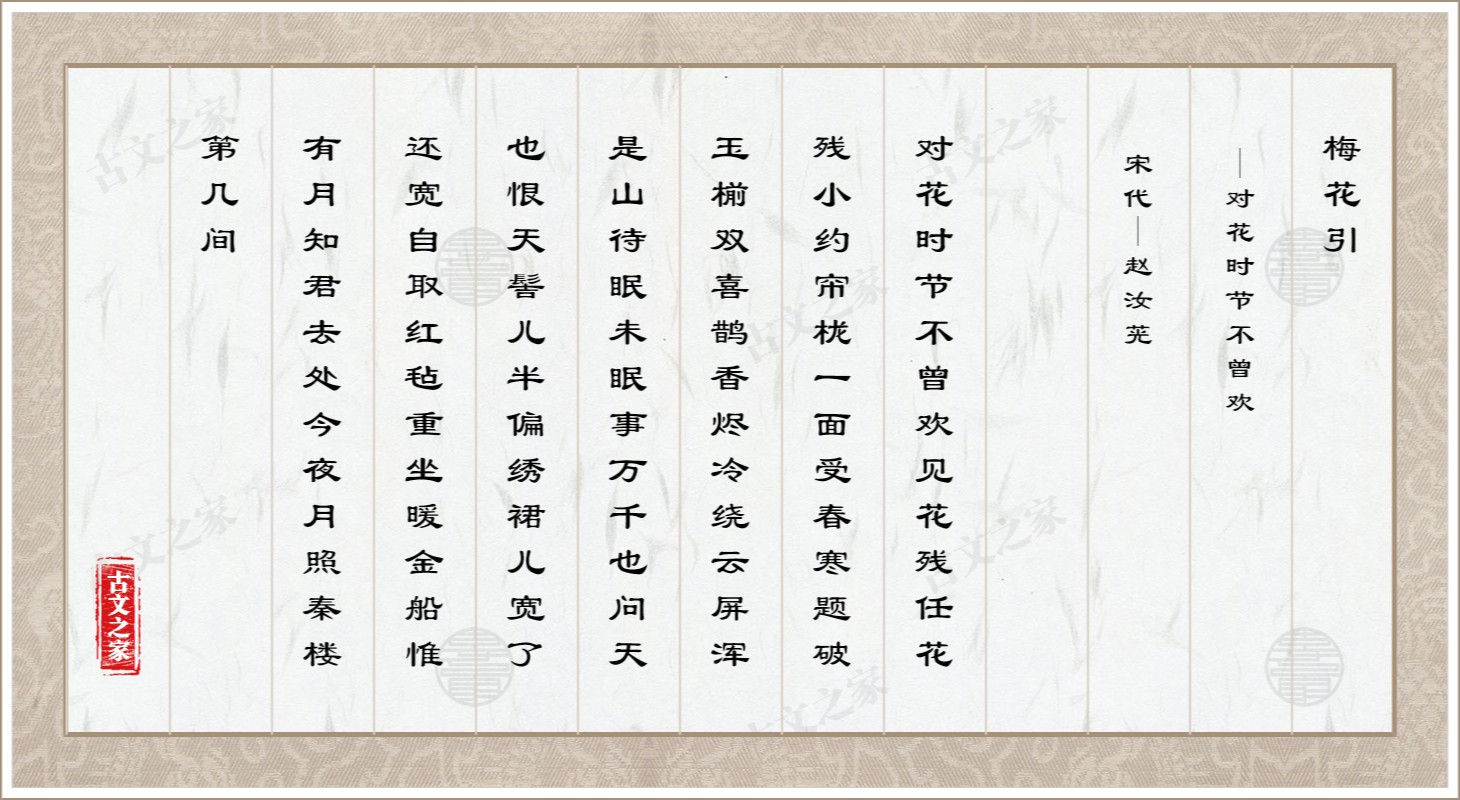 梅花引
—对花时节不曾欢
宋代—赵汝茪
对花时节不曾欢见花残任花
残小约帘栊一面受春寒题破
玉㭎双喜鹊香烬冷绕云屏浑
是山待眠未眠事万千也问天
也恨天髻儿半偏绣裙儿宽了
还宽自取红毡重坐暖金船惟
有月知君去处今夜月照秦楼
第几间
古文之家